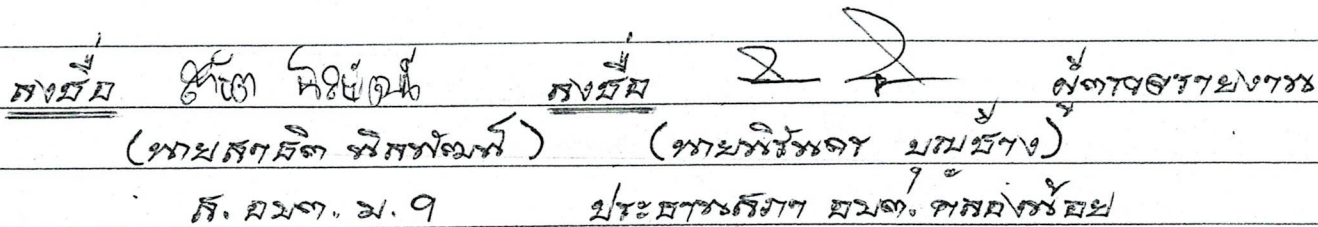 ลงชื่อ ลงชื่อ ผู้ตรวจรายงาน
(นายสาธิต นิลพัฒน์) (นายนิรันดร บุญช้าง)
ส. อบต. ม. ๑ ประธานสภา อบต. คลองน้อย